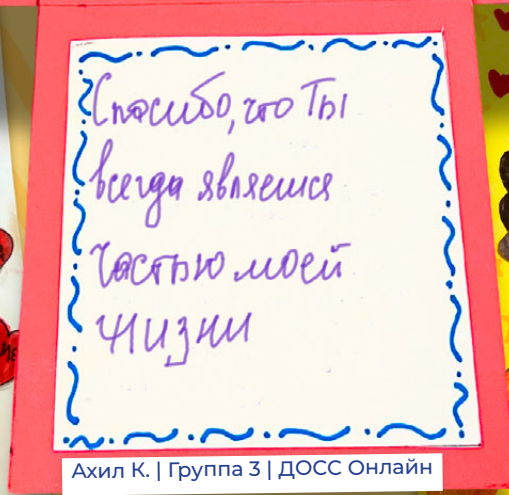 Спосибо, что Ты
всегда являешся
частью моей
жизни
Ахил К. | Группа 3 | ДОСС Онлайн